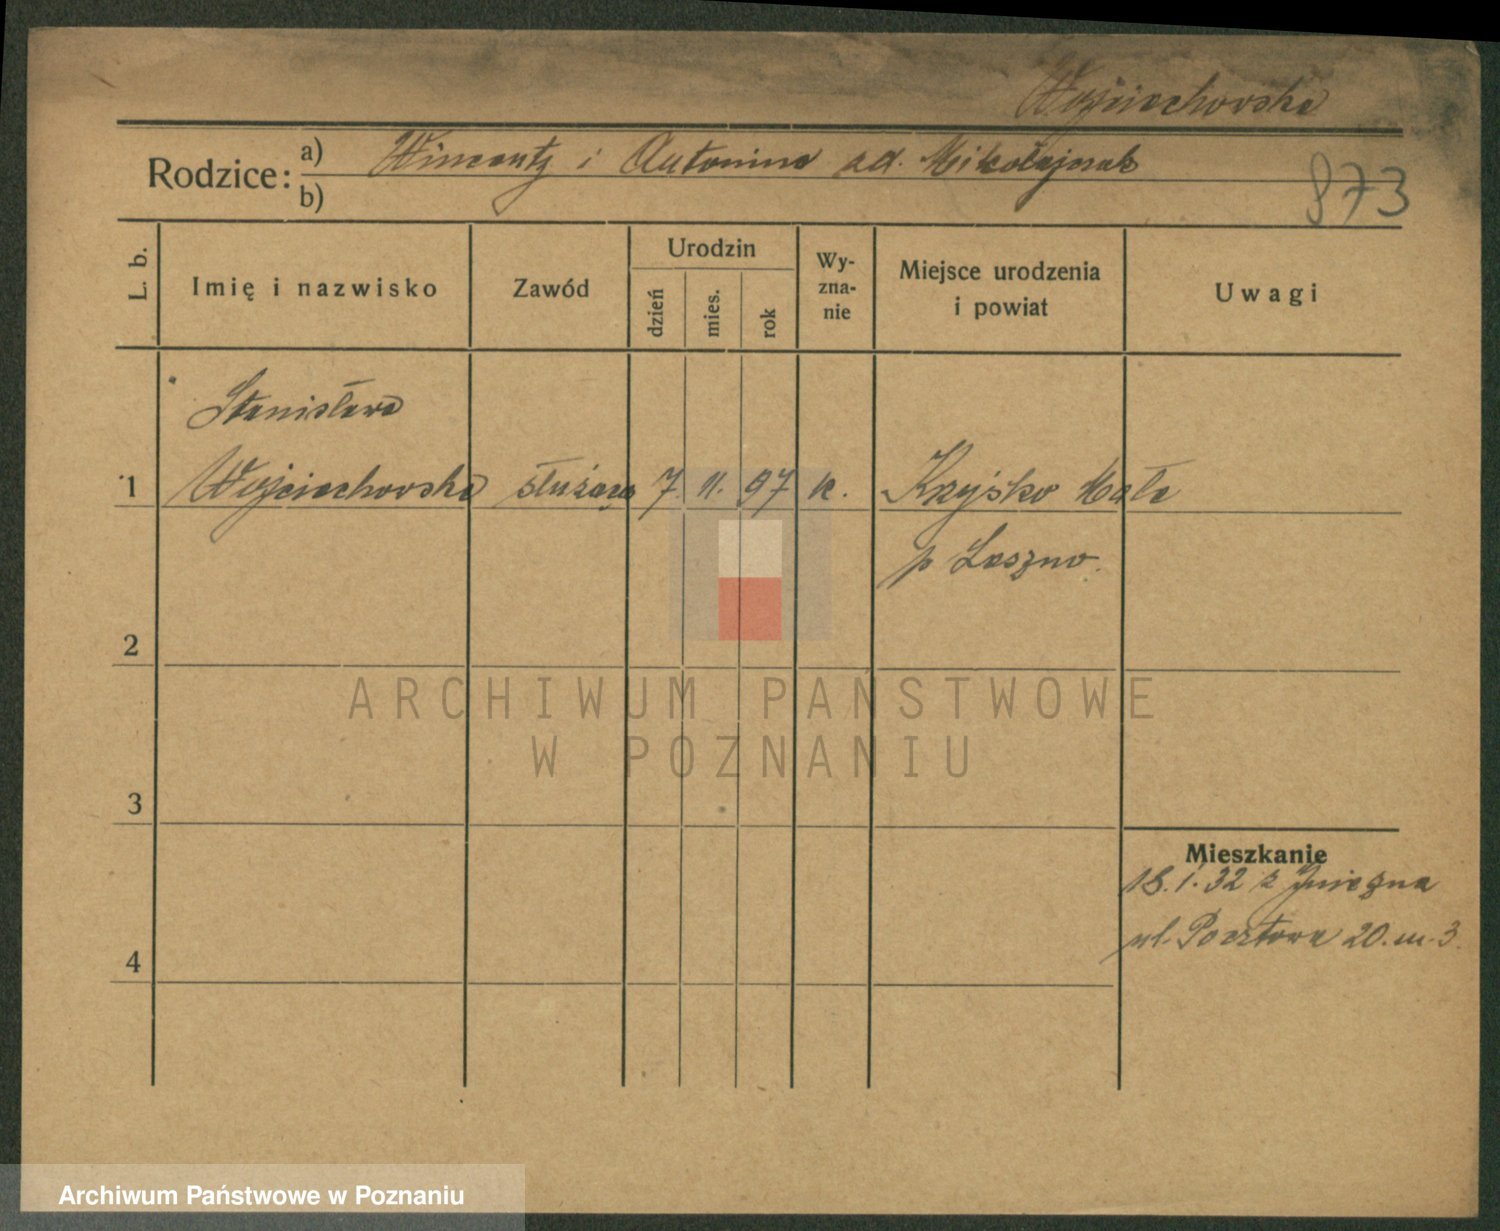 Wojciechowska
Rodzice: a) Wincenty i Antonina ad. Mikołajczak
b)
873
L. b.
Imię i nazwisko
Zawód
Urodzin
dzień
mies.
rok
Wy-
zna-
nie
Miejsce urodzenia
i powiat
Uwagi
Stanisława
1 Wojciechowska służąca 7 11. 97 k. Krzycko Małe
p Leszno.
2
ARCHIWUM PAŃSTWOWE
W POZNANIU
3
Mieszkanie
18.1.32 z Gniezna
ul. Pocztowa 20. m. 3.
4
Archiwum Państwowe w Poznaniu